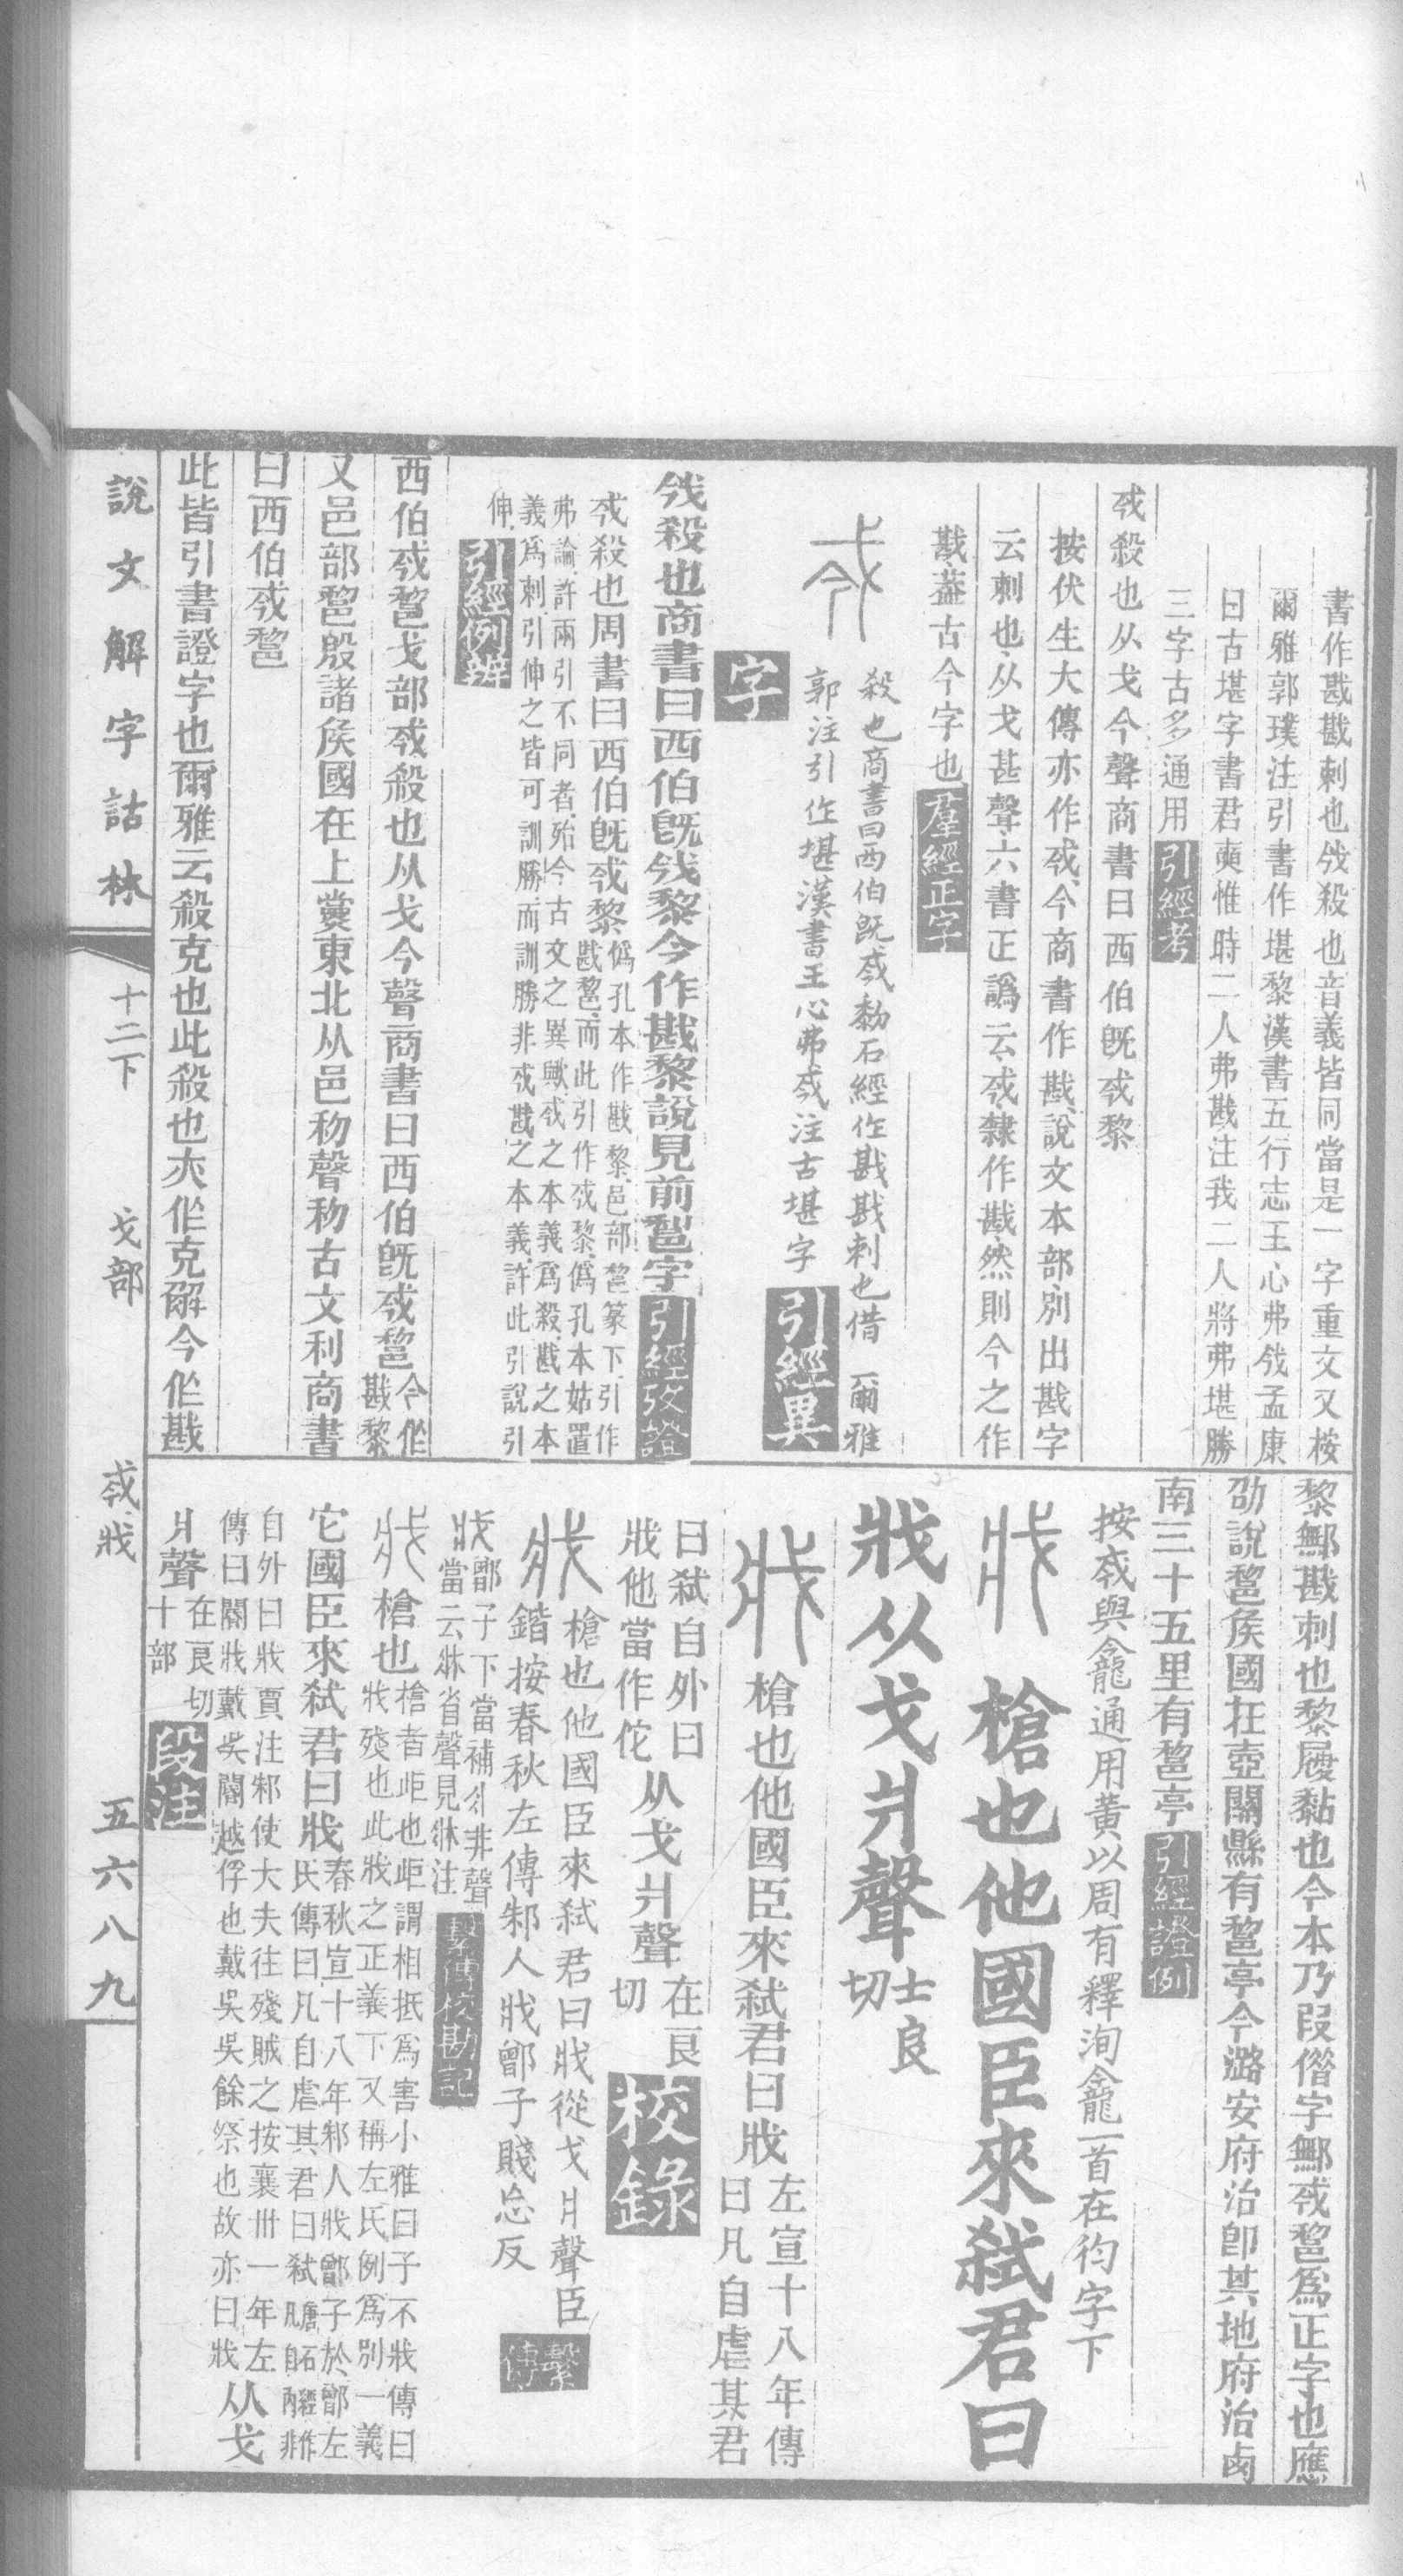 書作戡戡刺也𢦟殺也音義皆同當是一字重文又桉
爾雅郭璞注引書作堪黎漢書五行志王心弗𢦟孟康
曰古堪字書君奭惟時二人弗戡注我二人將弗堪勝
三字古多通用引經考
𢦟殺也从戈今聲商書曰西伯旣𢦟黎
按伏生大傳亦作𢦟今商書作戡說文本部別出戡字
云刺也从戈甚聲六書正譌云𢦟隸作戡然則今之作
戡葢古今字也羣經正字
殺也商書曰西伯旣𢦟黎石經作戡戡刺也借 爾雅
郭注引作堪漢書王心弗𢦟注古堪字
引經異
字
𢦟殺也商書曰西伯旣𢦟黎今作戡黎說見前𨛫字引經攷證
𢦟殺也周書曰西伯旣𢦟黎
僞孔本作戡黎邑部𨛫篆下引作
戡𨛫而此引作𢦟黎僞孔本姑置
弗論許兩引不同者殆今古文之異歟𢦟之本義爲殺戡之本
義爲刺引伸之皆可訓勝而訓勝非𢦟戡之本義許此引說引
伸引經例辨
西伯𢦟𨛫戈部𢦟殺也从戈今聲商書曰西伯旣𢦟𨛫今作戡黎
又邑部𨛫殷諸侯國在上黨東北从邑𥝢聲𥝢古文利商書
曰西伯𢦟𨛫
此皆引書證字也爾雅云殺克也此殺也亦作克解今作戡
黎䣜戡刺也黎履黏也今本乃叚借字䣜𢦟𨛫爲正字也應
劭說𨛫侯國在壺關縣有𨛫亭今潞安府治卽其地府治卤
南三十五里有𨛫亭引經證例
按𢦟與龕通用黄以周有釋洵龕一首在㣙字下
戕 槍也他國臣來弒君曰
戕从戈爿聲士良切
槍也他國臣來弒君曰戕
左宣十八年傳
曰凡自虐其君
曰弒自外曰
戕他當作佗
从戈爿聲在良切校錄
戕槍也他國臣來弒君曰戕從戈爿聲臣
鍇按春秋左傳邾人戕鄫子賤忩反繫傳
戕鄫子下當補爿非聲
當云牀省聲見牀注
繫傳校勘記
戕槍也
槍者歫也歫謂相抵爲害小雅曰子不戕傳曰
戕殘也此戕之正義下又稱左氏例爲別一義
它國臣來弒君曰戕
春秋宣十八年邾人戕鄫子於鄫左
氏傳曰凡自虐其君曰弒
自外曰戕賈注邾使大夫往殘賊之按襄卅一年左
傳曰閽戕戴吳閽越俘也戴吳吳餘祭也故亦曰戕
从戈
爿聲在良切十部段注
說文解字詁林
十二下
戈部
𢦟戕
五六八九